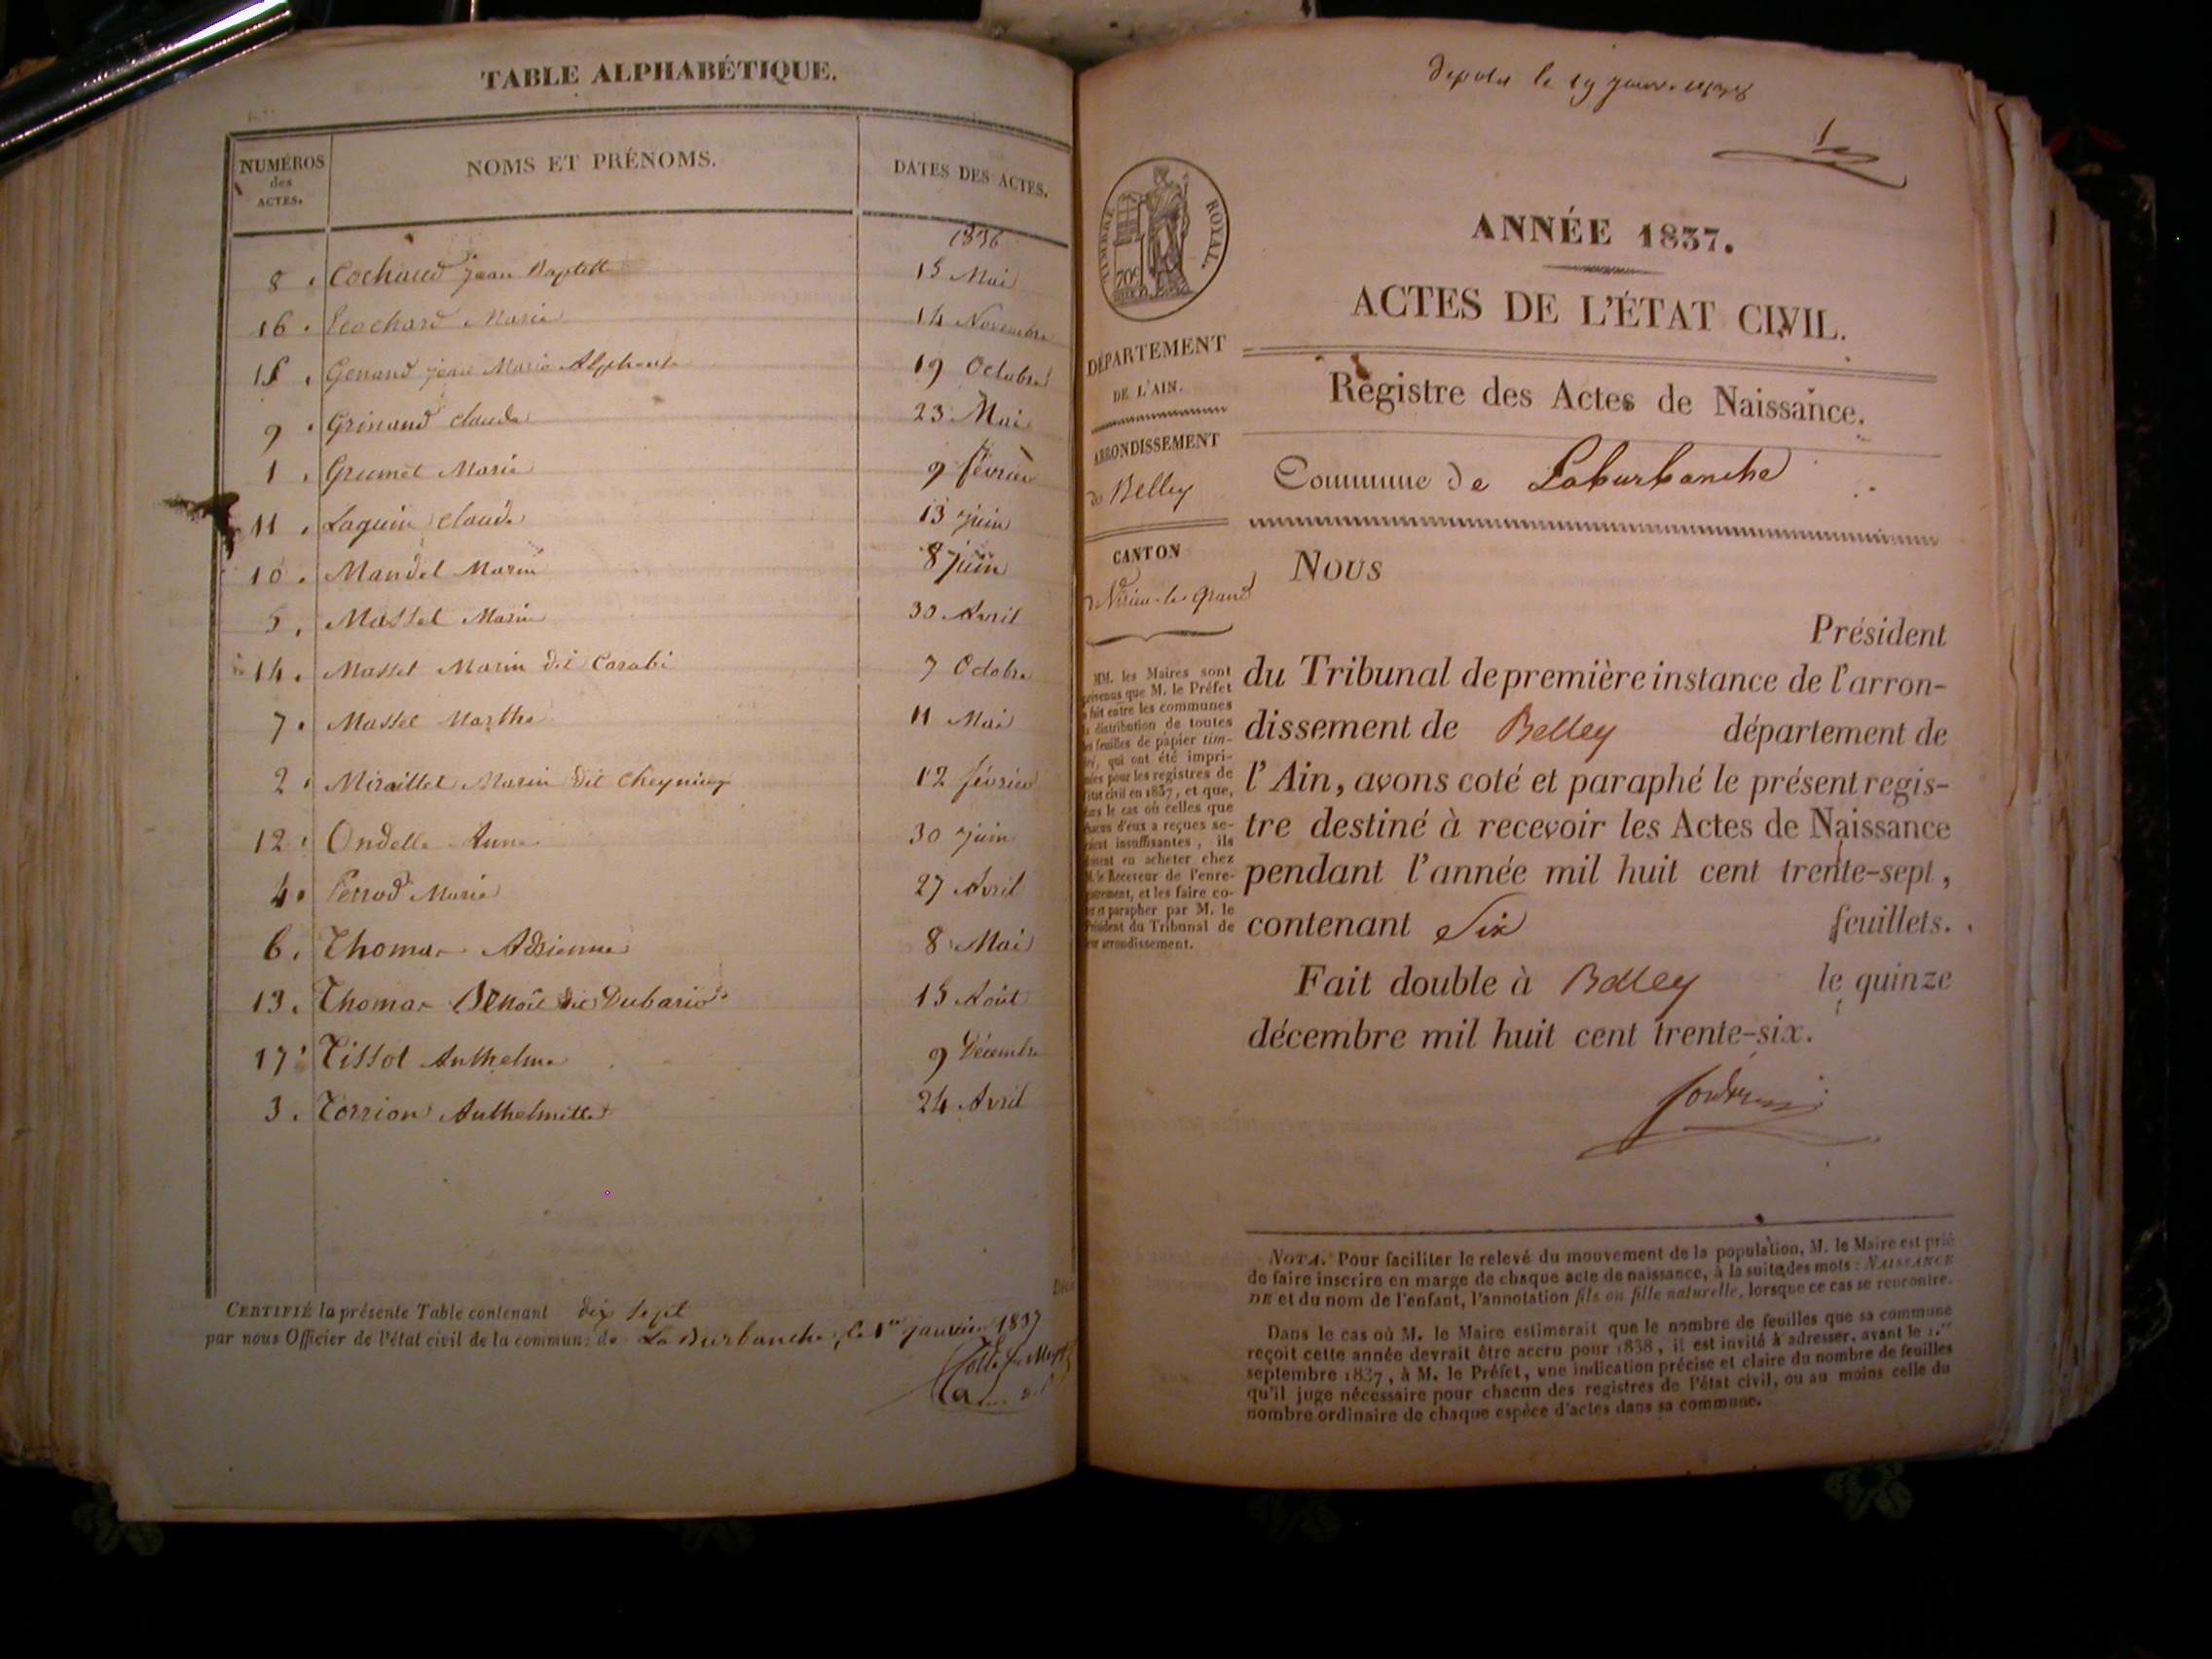 TABLE ALPHABÉTIQUE.
NUMÉROS des ACTES. NOMS ET PRÉNOMS. DATES DES ACTES.
1836
8 Cochaud jean Baptiste 15 Mai
16 Ecochard Marie 14 Novembre
15 Genand jean Marie Alphonse 19 Octobre
9 Grinand claude 23 Mai
1 Grumet Marie 9 février
11 Laguin claude 13 juin
10 Mandel Marie 8 juin
5 Massel Marie 30 Avril
14 Massel Marin dit Carabi 7 Octobre
7 Massel Marthe 11 Mai
2 Miraillet Marin dit 12 février
12 Ondelle Anne 30 juin
4 Perrod Marie 27 Avril
6 Thomas Adrienne 8 Mai
13 Thomas Benoît dit Dubario 15 Août
17 Tissot Anthelme 9 Décembre
3 Torrion Anthelmette 24 Avril
CERTIFIÉ la présente Table contenant dix sept
par nous Officier de l'état civil de la commune de La Burbanche, le 1er janvier 1837
déposé le 19
ANNÉE 1837.
ACTES DE L'ÉTAT CIVIL.
Registre des Actes de Naissance.
Commune de Laburbanche
TIMBRE ROYAL.
70c
DÉPARTEMENT
DE L'AIN.
ARRONDISSEMENT
de Belley
CANTON
Virieu-le-grand
MM. les Maires sont
prévenus que M. le Préfet
a fait entre les communes
la distribution de toutes
les feuilles de papier tim-
bré, qui ont été impri-
mées pour les registres de
l'état civil en 1837, et que,
dans le cas où celles que
chacun d'eux a reçues se-
raient insuffisantes, ils
doivent en acheter chez
M. le Receveur de l'enre-
gistrement, et les faire co-
ter et parapher par M. le
Président du Tribunal de
leur arrondissement.
Nous
Président
du Tribunal de première instance de l'arron-
dissement de Belley département de
l'Ain, avons coté et paraphé le présent regis-
tre destiné à recevoir les Actes de Naissance
pendant l'année mil huit cent trente-sept,
contenant Six feuillets.
Fait double à Belley le quinze
décembre mil huit cent trente-six.
NOTA. Pour faciliter le relevé du mouvement de la population, M. le Maire est prié
de faire inscrire en marge de chaque acte de naissance, à la suite des mots : NAISSANCE
DE et du nom de l'enfant, l'annotation fils ou fille naturelle, lorsque ce cas se rencontre.
Dans le cas où M. le Maire estimerait que le nombre de feuilles que sa commune
reçoit cette année devrait être accru pour 1838, il est invité à adresser, avant le 1.er
septembre 1837, à M. le Préfet, une indication précise et claire du nombre de feuilles
qu'il juge nécessaire pour chacun des registres de l'état civil, ou au moins celle du
nombre ordinaire de chaque espèce d'actes dans sa commune.